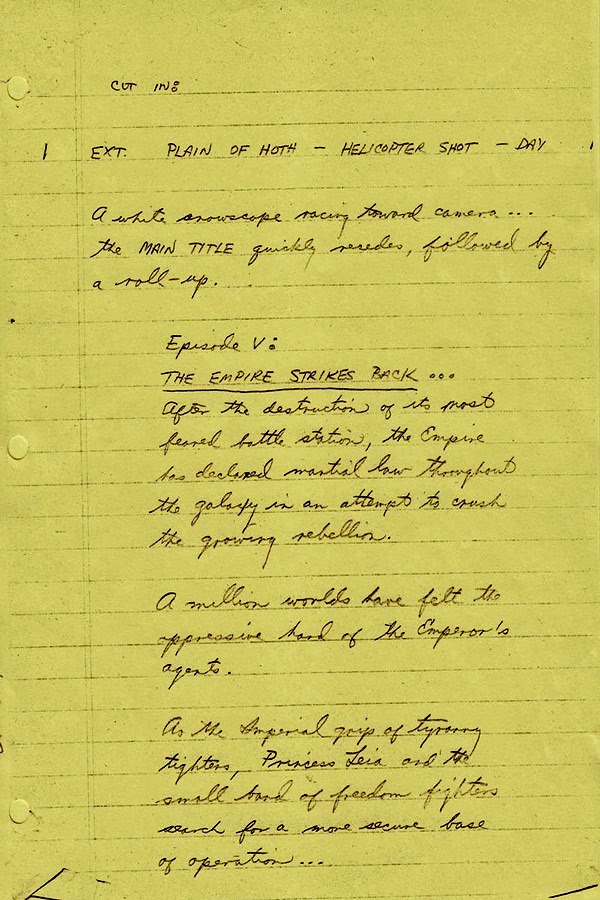 CUT IN:
1 EXT. PLAIN OF HOTH - HELICOPTER SHOT - DAY 1
A white snowscape racing toward camera...
the MAIN TITLE quickly resedes, followed by
a roll-up.
Episode V:
THE EMPIRE STRIKES BACK...
After the destruction of its most
feared battle station, the Empire
has declared martial law throughout
the galaxy in an attempt to crush
the growing rebellion.
A million worlds have felt the
oppressive hand of the Emperor's
agents.
As the Imperial grip of tyranny
tighters, Princess Leia and the
small band of freedom fighters
search for a more secure base
of operation...